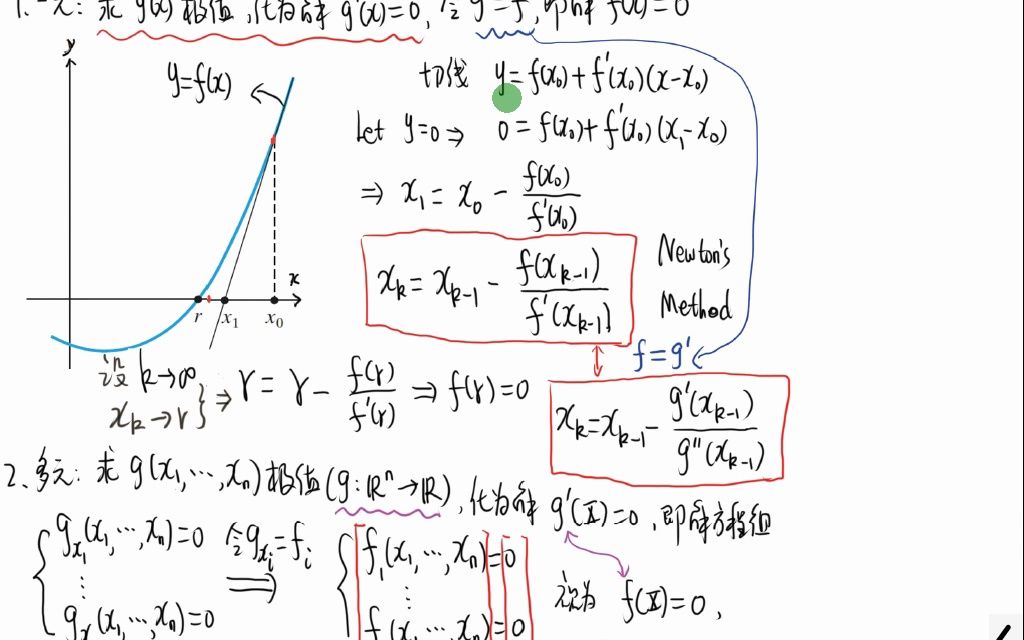 1.一元: 求 g(x) 极值, 化为解 g'(x)=0, 令 g'=f, 即解 f(x)=0
y
y=f(x)
切线 y=f(x₀)+f'(x₀)(x-x₀)
Let y=0 ⇒ 0=f(x₀)+f'(x₀)(x₁-x₀)
⇒ x₁=x₀-f(x₀)/f'(x₀)
x_k=x_{k-1}-f(x_{k-1})/f'(x_{k-1})
Newton's
Method
x
r x₁ x₀
f=g'
设 k→∞
x_k→r } ⇒ r=r-f(r)/f'(r) ⇒ f(r)=0
x_k=x_{k-1}-g'(x_{k-1})/g''(x_{k-1})
2.多元: 求 g(x₁,⋯,xₙ) 极值 (g:ℝⁿ→ℝ), 化为解 g'(X)=0, 即解方程组
{ g_{x₁}(x₁,⋯,xₙ)=0 令 g_{xᵢ}=fᵢ { f₁(x₁,⋯,xₙ)=0
⋮ ⟹ ⋮
g_x(x₁,⋯,xₙ)=0 f(x₁,⋯,xₙ)=0
f(X)=0,